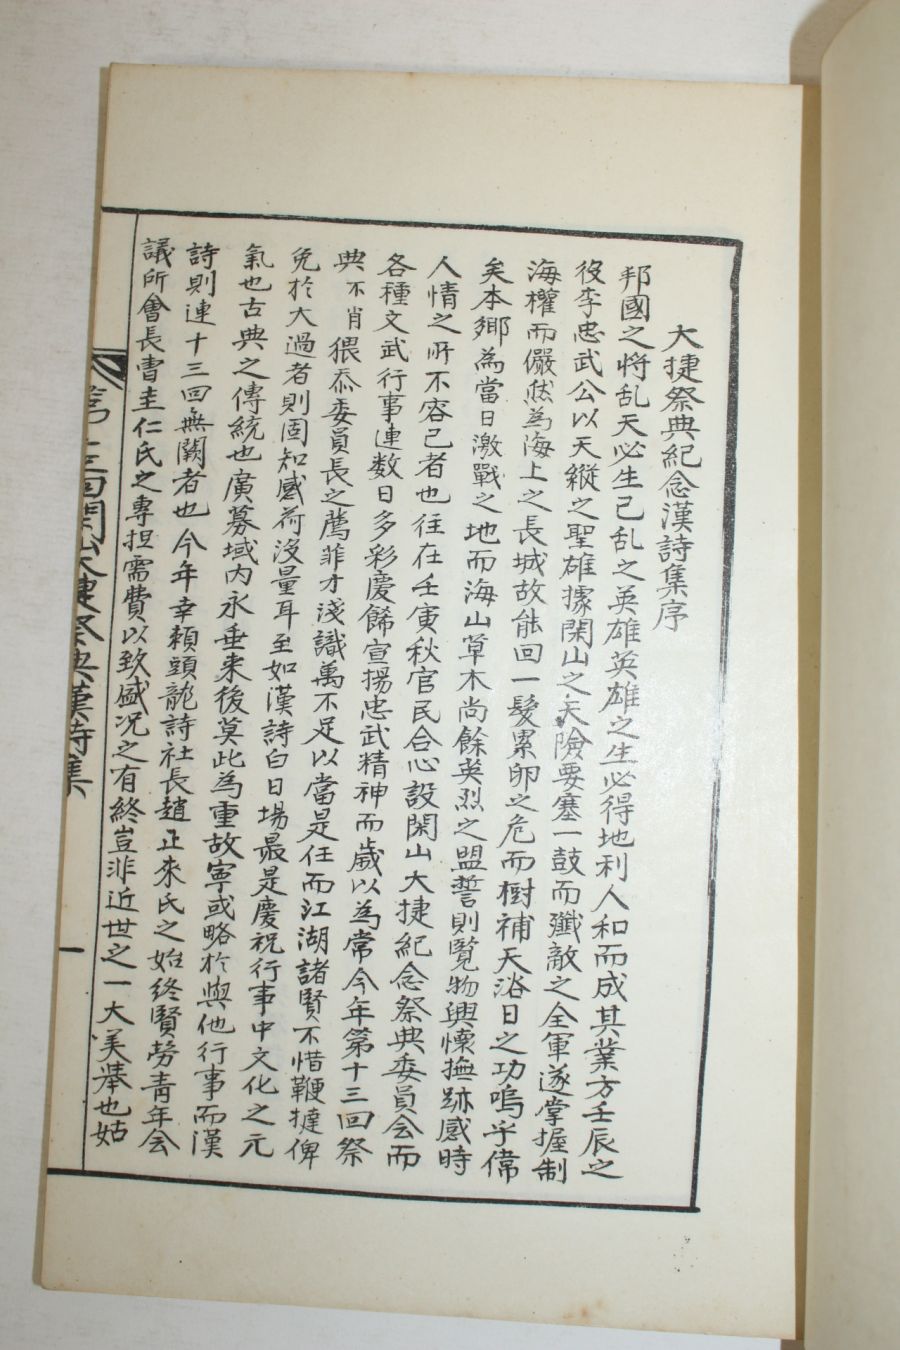 大捷祭典紀念漢詩集序
邦國之將乱天必生己乱之英雄英雄之生必得地利人和而成其業方壬辰之
役李忠武公以天縱之聖雄據閑山之天險要塞一鼓而殲敵之全軍遂掌握制
海權而儼然為海上之長城故能回一髮累卵之危而樹補天浴日之功嗚乎偉
矣本鄕為當日激戰之地而海山草木尚餘英烈之盟誓則覧物興懷撫跡感時
人情之所不容己者也往在壬寅秋官民合心設閑山大捷紀念祭典委員会而
各種文武行事連数日多彩慶餙宣揚忠武精神而歲以為常今年第十三回祭
典不肖猥忝委員長之薦菲才淺識萬不足以當是任而江湖諸賢不惜鞭撻俾
免於大過者則固知感荷沒量耳至如漢詩白日場最是慶祝行事中文化之元
氣也古典之傳統也廣募域内永垂来後莫此為重故寧或略於與他行事而漢
詩則連十三回無闕者也今年幸賴頭龍詩社長趙正來氏之始終賢勞靑年会
議所會長曺圭仁氏之專担需費以致盛况之有終豈非近世之一大美擧也姑
第十三回閑山大捷祭典漢詩集
一